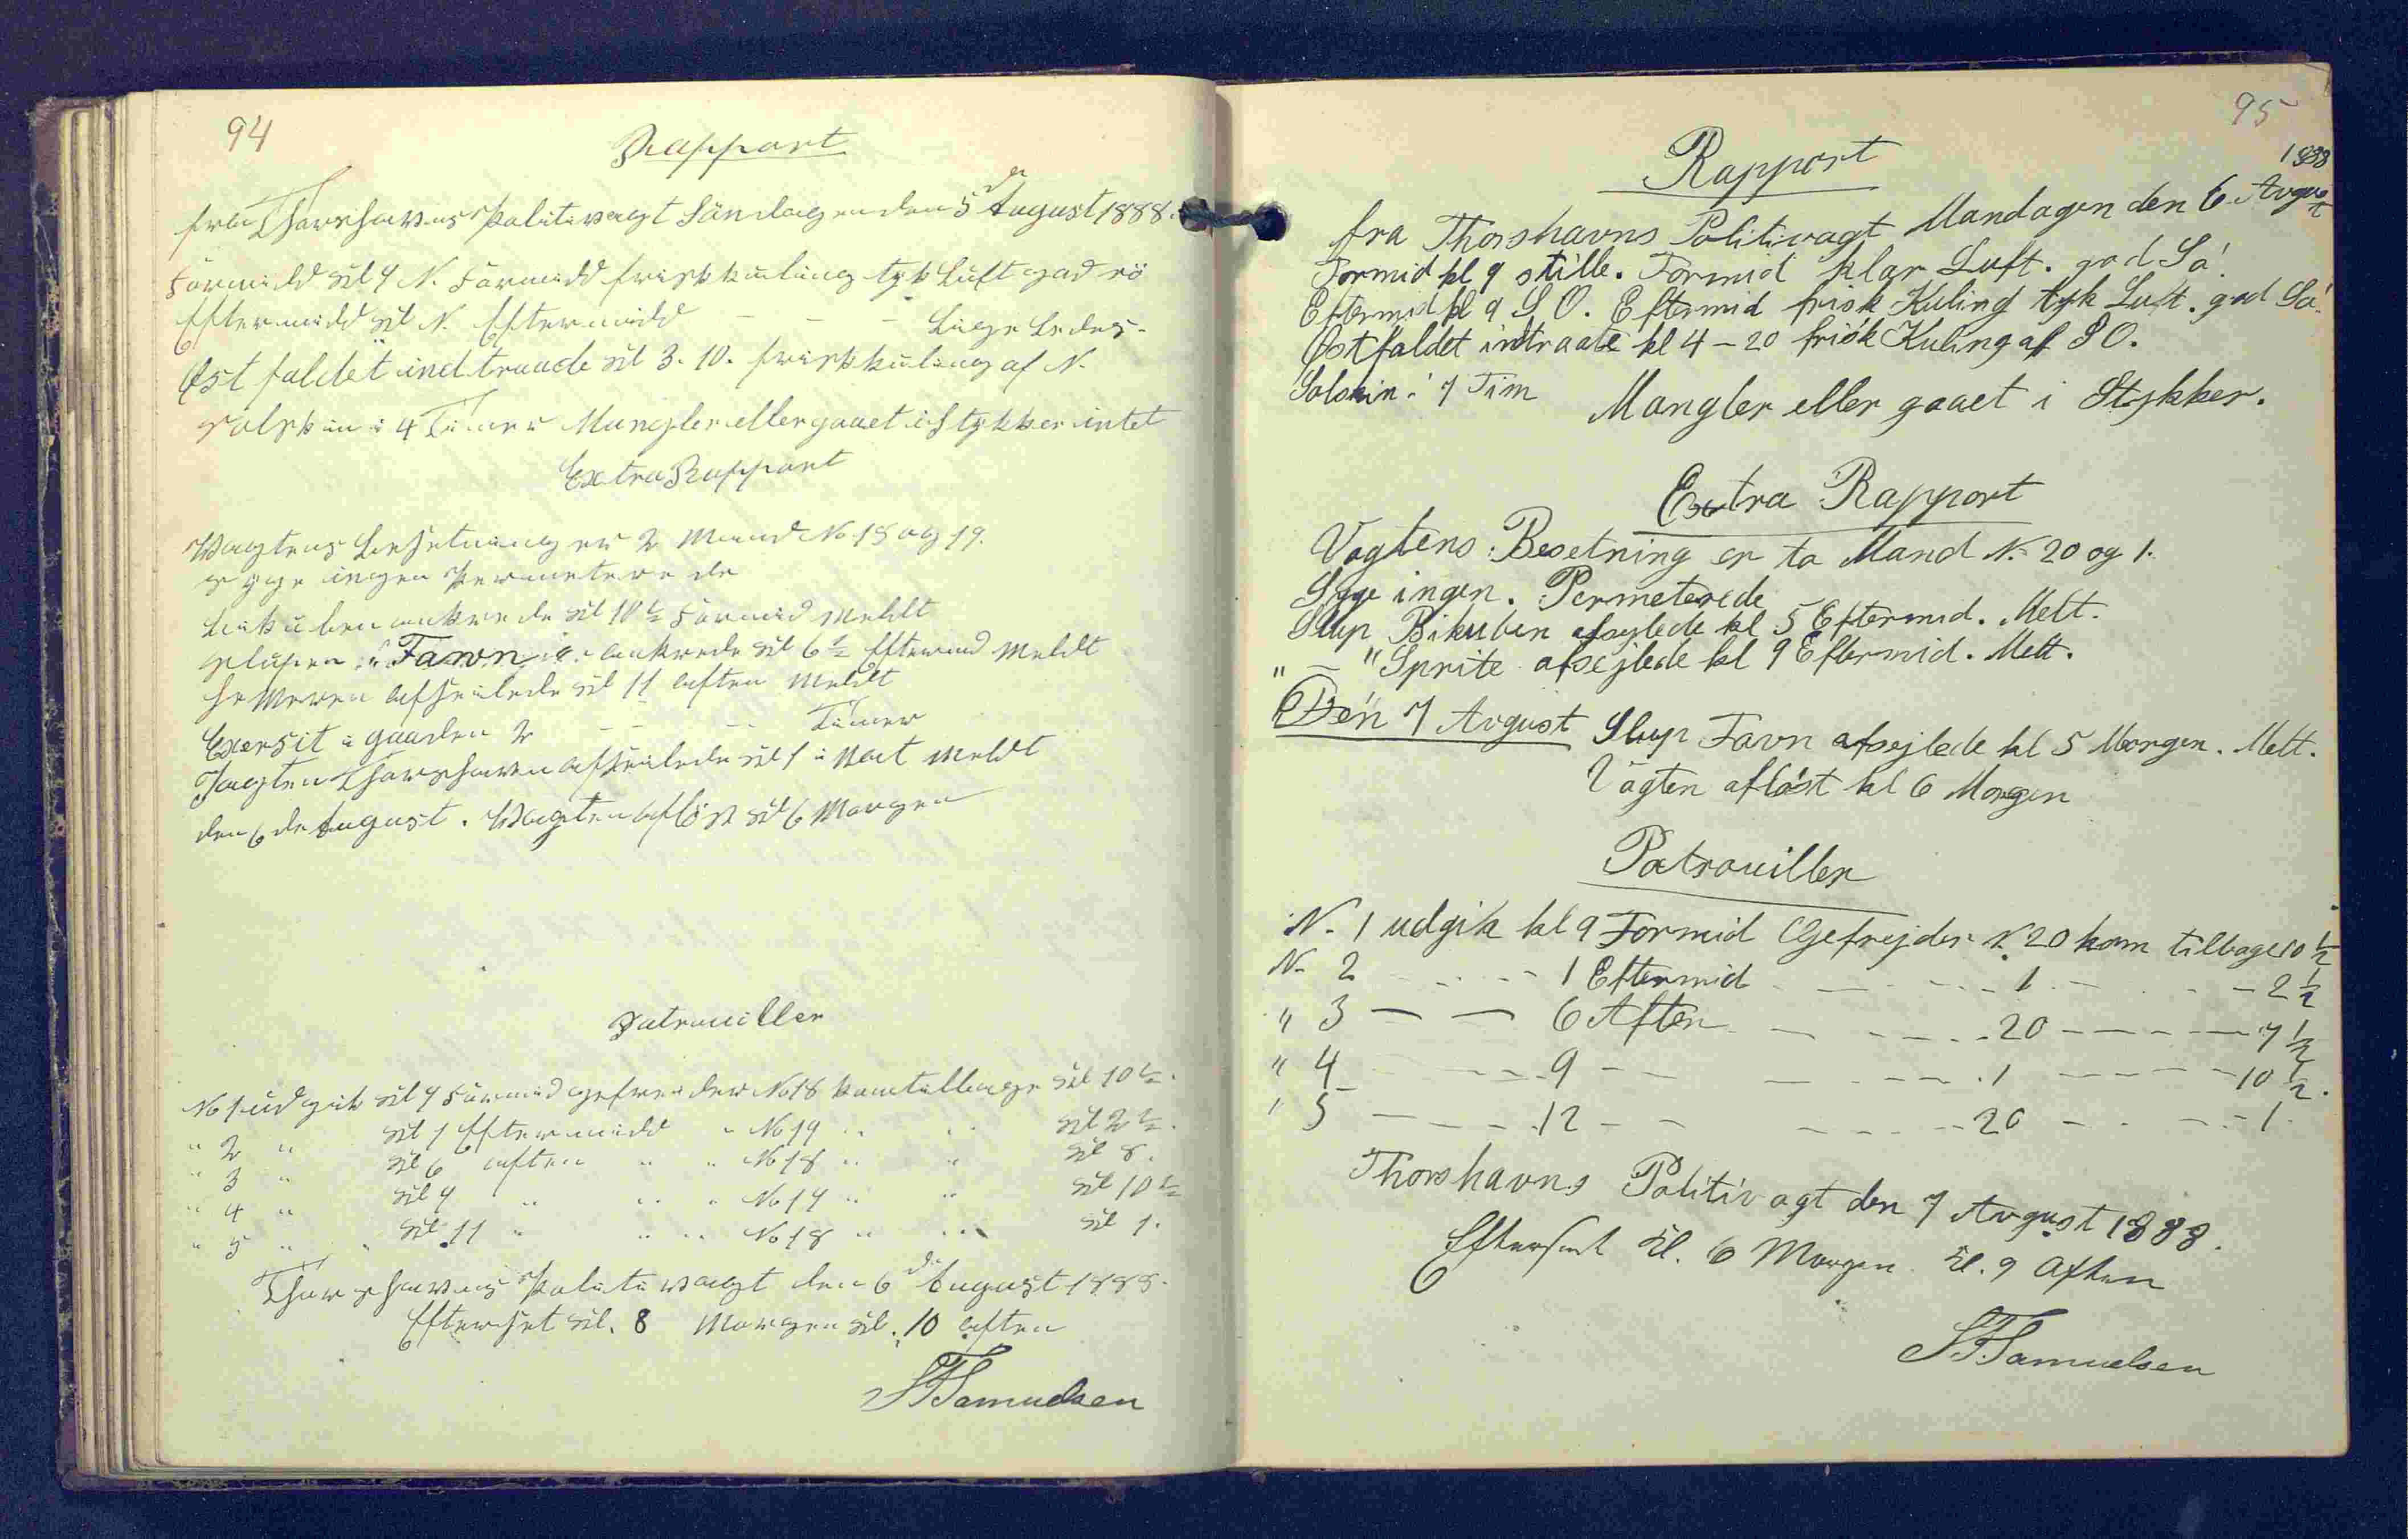 94
Rapport
fra Thorshavns Politivagt Söndagen den 5de August 1888.
Formidd kl 9 N. Formidd frisk kuling tyk Luft god sö
Eftermidd kl N. Eftermidd – – – Lige Ledes.
Østfaldet indtraade kl 3.10. frisk kuling af N.
Solskin i 4 Timer Mangler eller gaaet i Stykker intet
Extra Rapport
Wagtens besetning er 2 Mand No 18 og 19.
syge ingen Permeterede
bikuben ankrede kl 10½ Formid Meldt
slupen Favn ankrede kl 6½ Eftermid Meldt
afseilede kl 11 aften Meldt
Exersit i gaarden 2 – – – Timer
Jagten Thorshavn afseilede kl 1 i Nat Meldt
den 6de August. Wagten aflöst kl 6 Morgen
Patrouiller
No 1 udgik kl 9 Formid gefreider No 18 kom tilbage kl 10½.
" 2 " kl 1 Eftermidd " No 19 " " kl 2½.
" 3 " kl 6 aften " " No 18 " " kl 8.
" 4 " kl 9 " " " No 19 " " kl 10½
" 5 " " kl 11 " " " No 18 " " kl 1.
Thorshavns Politivagt den 6de August 1888.
Efterset kl. 8 Morgen kl. 10 aften
SFSamuelsen
95
Rapport
1888
fra Thorshavns Politivagt Mandagen den 6. Avgust
Formid kl 9 stille. Formid klar Luft. god Sö.
Eftermid kl 9 S.O. Eftermid frisk Kuling tyk Luft. god Sö.
Østfaldet intraate kl 4-20 frisk Kuling af S O.
Solskin i 7 Tim Mangler eller gaaet i Stykker.
Extra Rapport
Vagtens Besetning er to Mand N. 20 og 1.
Syge ingen. Permeterede
Slup Bikuben afsejlede kl 5 Eftermid. Melt.
" – " Sprite afsejlede kl 9 Eftermid. Melt.
Den 7 Avgust Slup Favn afsejlede kl 5 Morgen. Melt.
Vagten afløst kl 6 Morgen
Patrouiller
N. 1 udgik kl 9 Formid Gefrejder N. 20 kom tilbage 10½
N. 2 – – – 1 Eftermid – – – 1 – – – 2½
" 3 – – 6 Aften – – – 20 – – – 7½
" 4 – – – 9 – – – – 1 – – – 10½.
" 5 – – – 12 – – – – 20 – – – 1.
Thorshavns Politivagt den 7 Avgust 1888.
Efterset kl. 6 Morgen kl. 9 Aften
SFSamuelsen